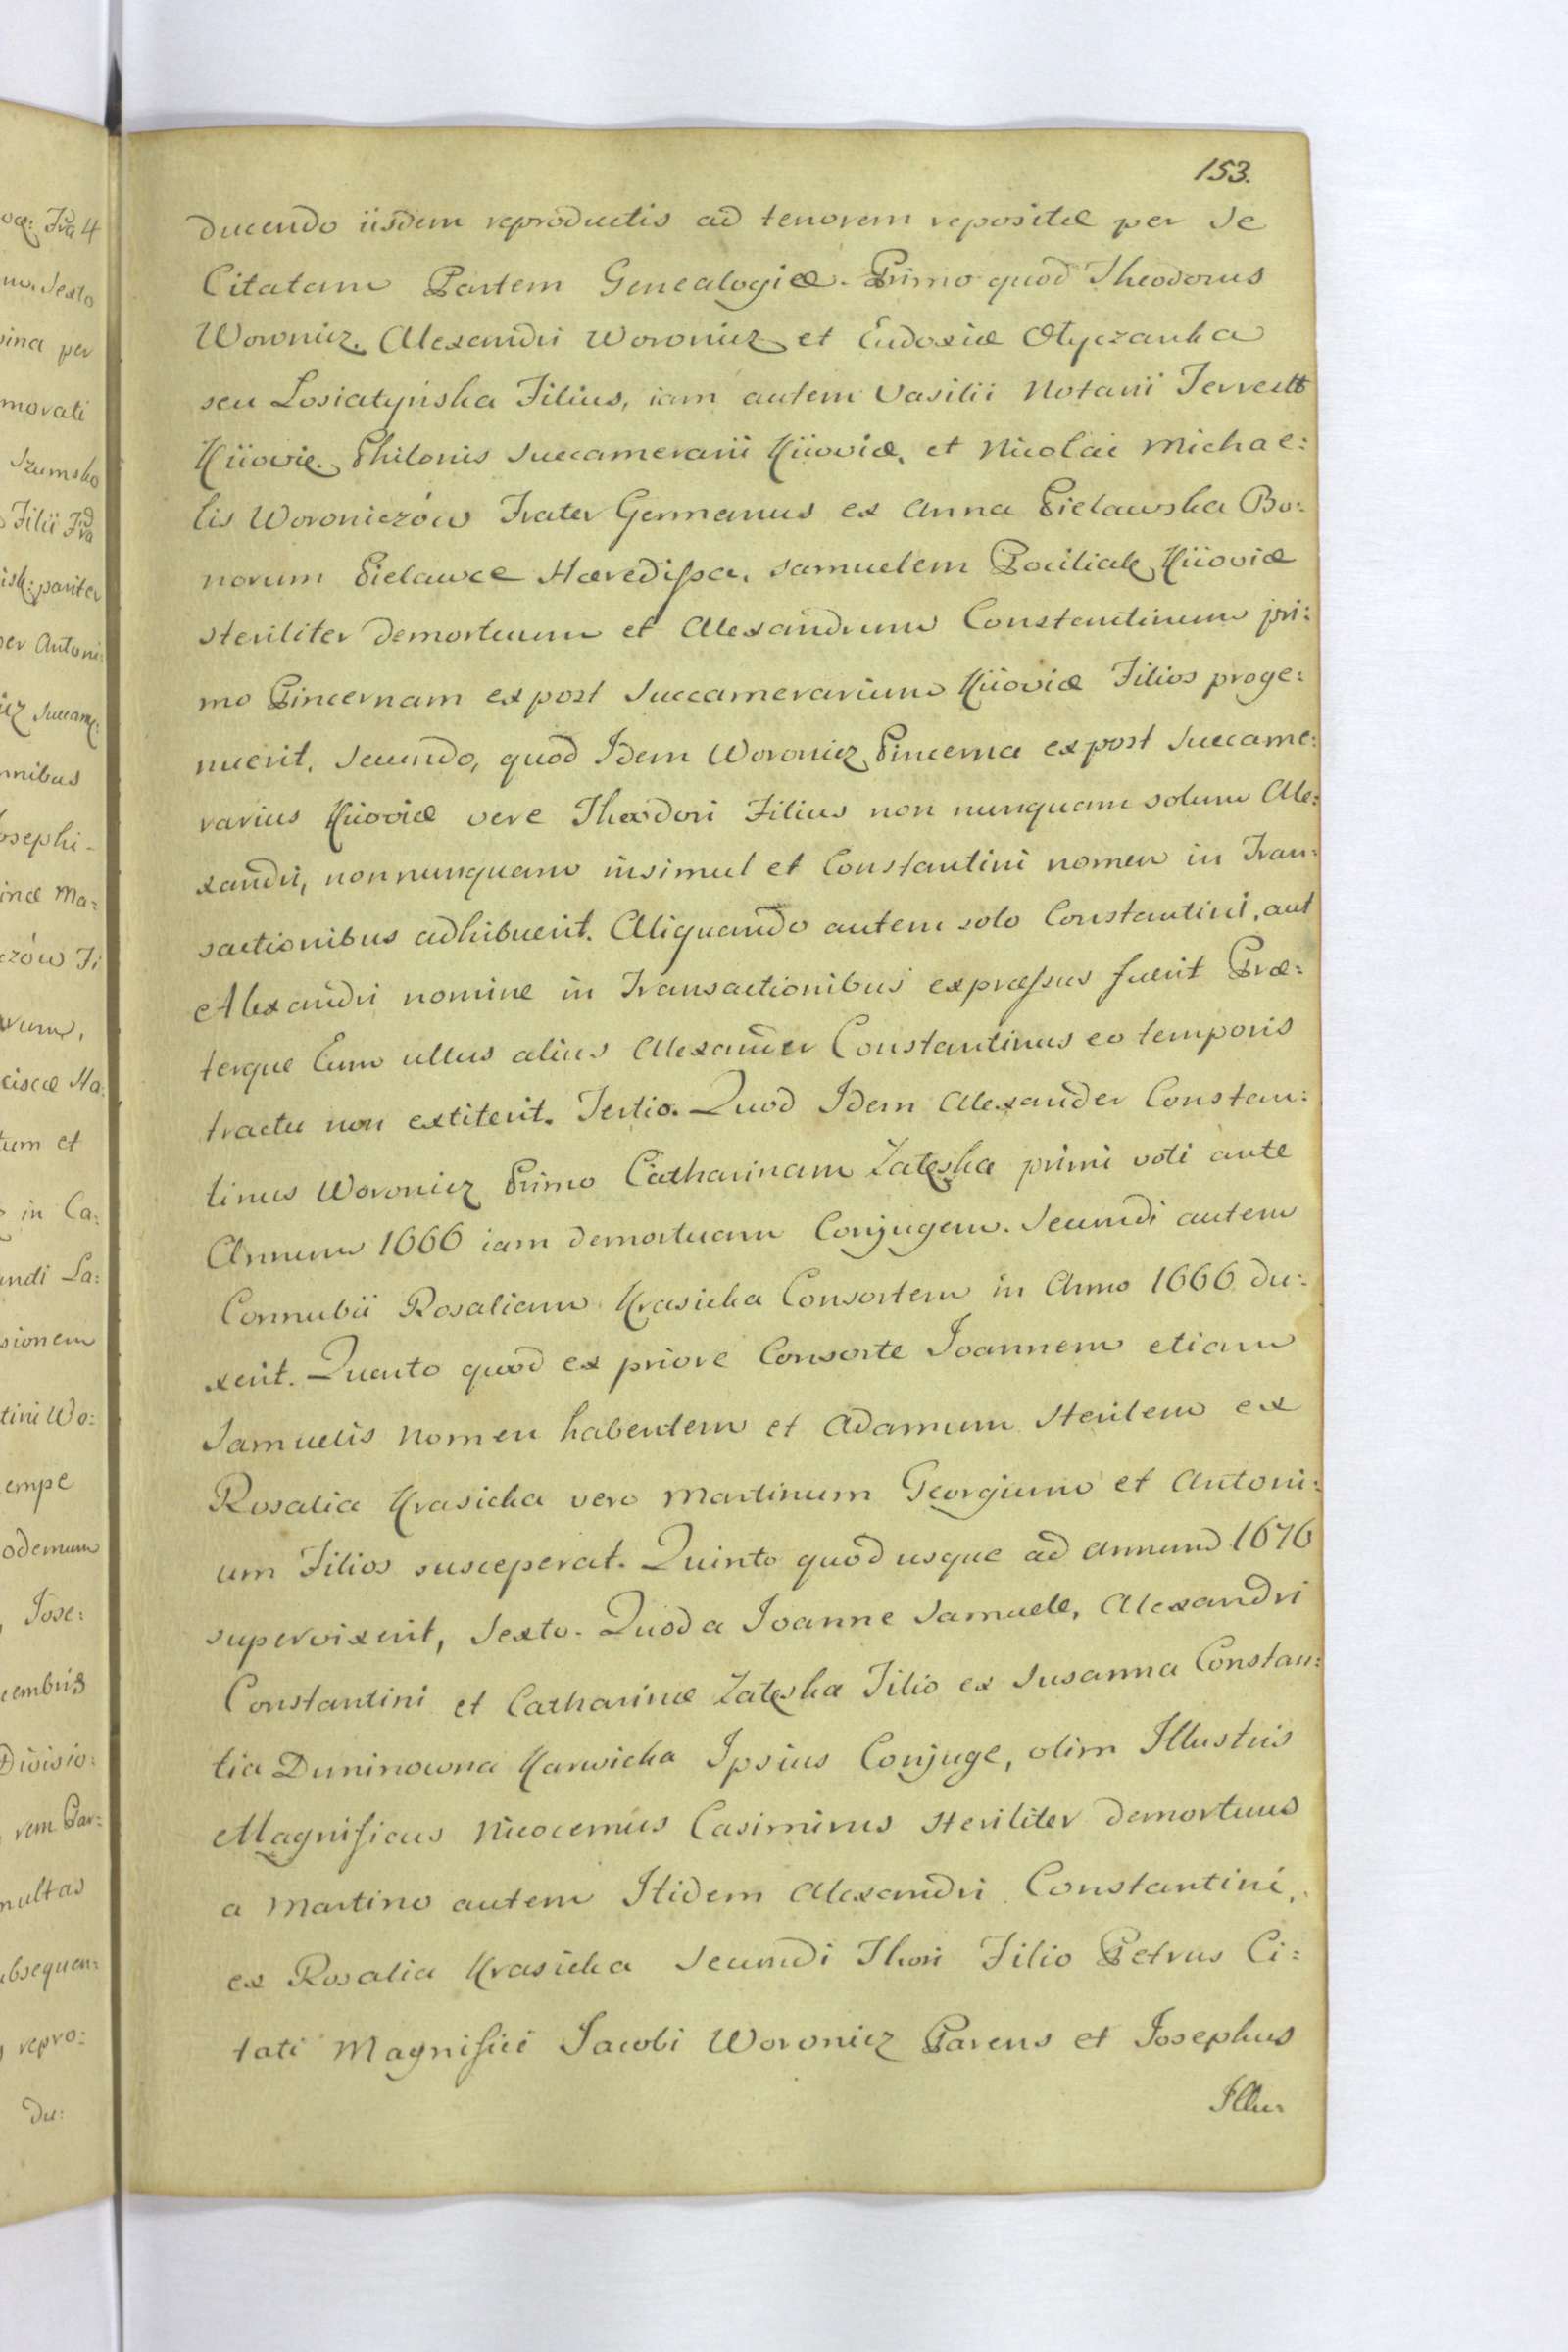 153.
ducendo iisdem reproductis ad tenorem repositæ per se
Citatam Partem Genealogiæ. Primo quod Theodorus
Woronicz. Alexandri Woronicz et Eudoxiæ Otyczanka
seu Losiatyńska Filius, iam autem Vasilii Notarii Terrestr
Kiioviæ. Philonis Succamerarii Kiioviæ, et Nicolai Michae:
lis Woroniczów Frater Germanus ex Anna Pielawska Bo:
norum Pielawce Hæredissa, Samuelem Kiioviæ
steriliter demortuum et Alexandrum Constantinum pri:
mo Pincernam ex post Succamerarium Kiioviæ Filios proge:
nuerit. Secundo, quod Idem Woronicz Pincerna ex post Succame:
rarius Kiioviæ vere Theodori Filius non nunquam solum Ale:
xandri, nonnunquam insimul et Constantini nomen in Tran:
sactionibus adhibuerit. Aliquando autem solo Constantini, aut
Alexandri nomine in Transactionibus expræssus fuerit Præ:
terque Eum ullus alius Alexander Constantinus eo temporis
tractu non extiterit. Tertio. Quod Idem Alexander Constan:
tinus Woronicz Primo Catharinam Zateska primi voti ante
Annum 1666 iam demortuam Conjugem. Secundi autem
Connubii Rosaliam Krasicka Consortem in Anno 1666 du:
xerit. Quarto quod ex priore Consorte Joannem etiam
Samuelis nomen habentem et Adamum Sterilem ex
Rosalia Krasicka vero Martinum Georgium et Antoni:
um Filios susceperat. Quinto quod usque ad annum 1676
supervixerit, Sexto. Quod a Joanne Samuele, Alexandri
Constantini et Catharinæ Zateska Filio ex Susanna Constan:
tia Duninowna Karwicka Ipsius Conjuge, olim Illustris
Magnificus Casimirus steriliter demortuus
a Martino autem Itidem Alexandri Constantini,
ex Rosalia Krasicka Secundi Thori Filio Petrus Ci:
tati Magnifici Jacobi Woronicz Parens et Josephus
Illu: